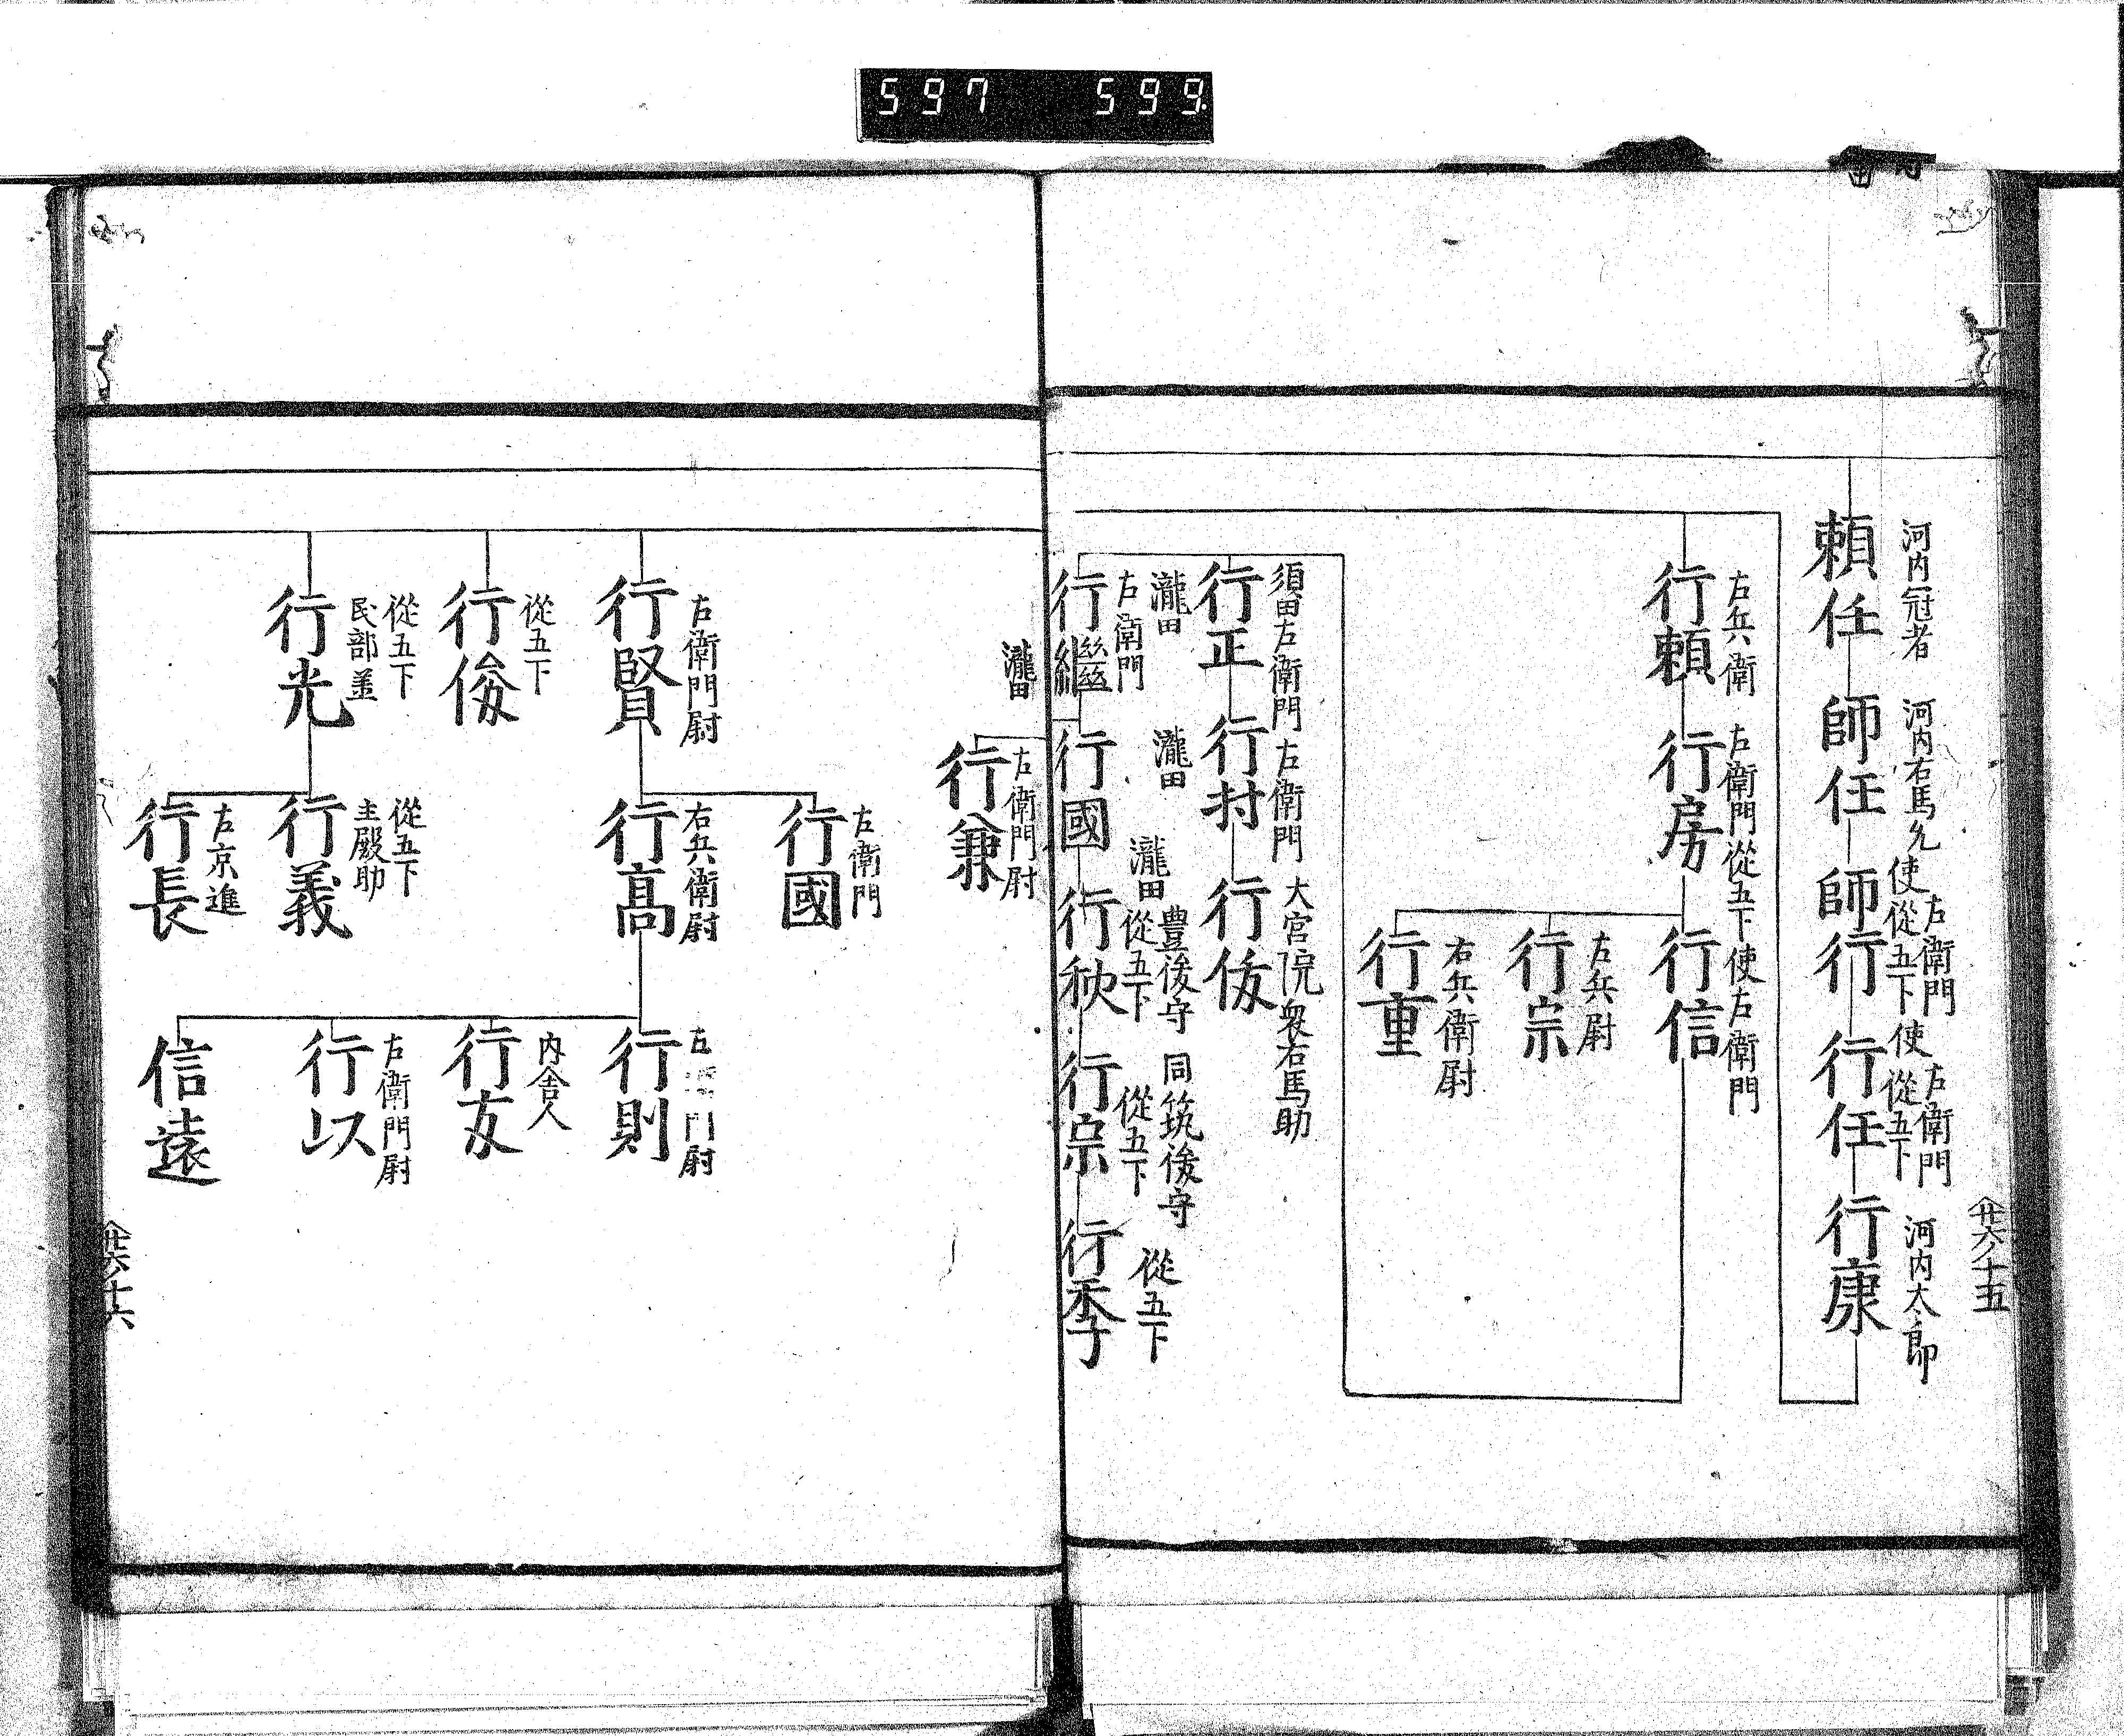 597 599
河内冠者
頼任
河内右馬允
師任
左衛門
使從五下
師行
左衛門
使從五下
行任
河内太郎
行康
左兵衛
行頼
左衛門從五下使
行房
左衛門
行信
左兵尉
行宗
右兵衛尉
行重
須田左衛門
行正
左衛門
行村
大宮院衆右馬助
行俊
瀧田
左衛門
行繼
瀧田
行國
瀧田
豊後守
從五下
行秋
同筑後守
從五下
行宗
從五下
行季
廿六ノ十五
瀧田
左衛門尉
行兼
左衛門尉
行賢
左衛門
行國
右兵衛尉
行高
左 門尉
行則
内舎人
行友
左衛門尉
行以
信遠
從五下
行俊
從五下
民部
行光
從五下
主殿助
行義
左京進
行長
廿六ノ十六